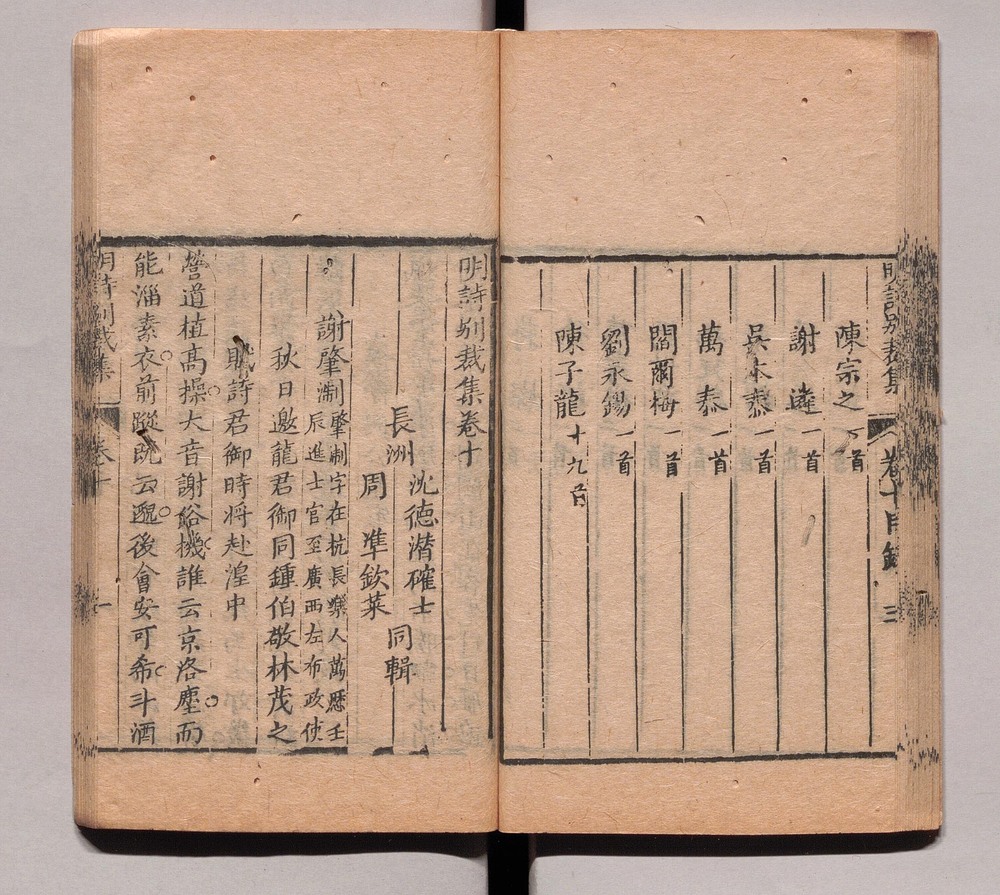 明詩別裁集 卷十目錄 三
陳宗之 一首
謝 逵 一首
吳本泰 一首
萬 泰 一首
閻爾梅 一首
劉永錫 一首
陳子龍 十九首
明詩別裁集卷十
長洲 沈德潛確士 同輯
周 準欽萊
謝肇淛 肇淛字在杭長樂人萬歷壬
辰進士官至廣西左布政使
秋日邀龍君御同鍾伯敬林茂之
賦詩君御時将赴湟中
營道植高操大音謝俗機誰云京洛塵而
能淄素衣前蹤既云邈後會安可希斗酒
明詩別裁集 卷十 一